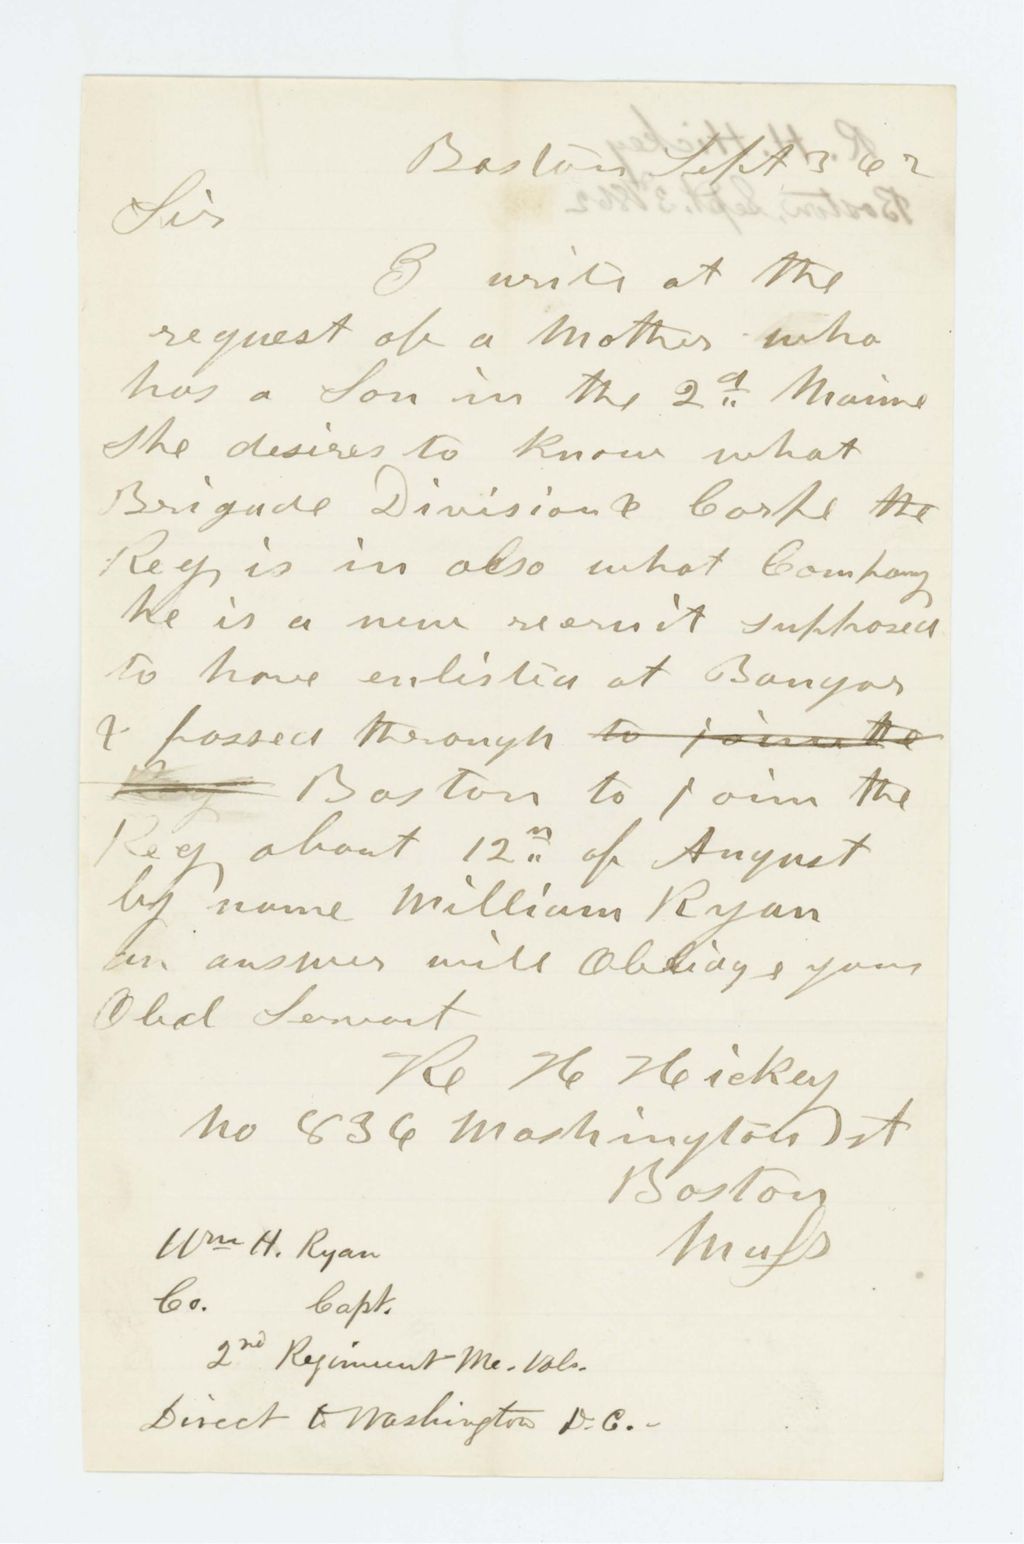 Boston Sept 3 62
Sir
I write at the
request of a Mother who
has a Son in the 2d Maine
She desires to know what
Brigade Division & Corps the
Reg is in also what Company
he is a new recruit supposed
to have enlisted at Bangor
& passed through to joinn the
Reg Boston to joinn the
Reg about 12n of August
by name William Ryan
an answer will Obliage yours
Obd Servant
R H Hickey
No 836 Washington St
Boston
Mass
Wm H. Ryan
Co. Capt.
2nd Regiment Me. Vols.
Direct to Washington D.C.-
R. H. Hickey
Boston, Sept. 3 1862